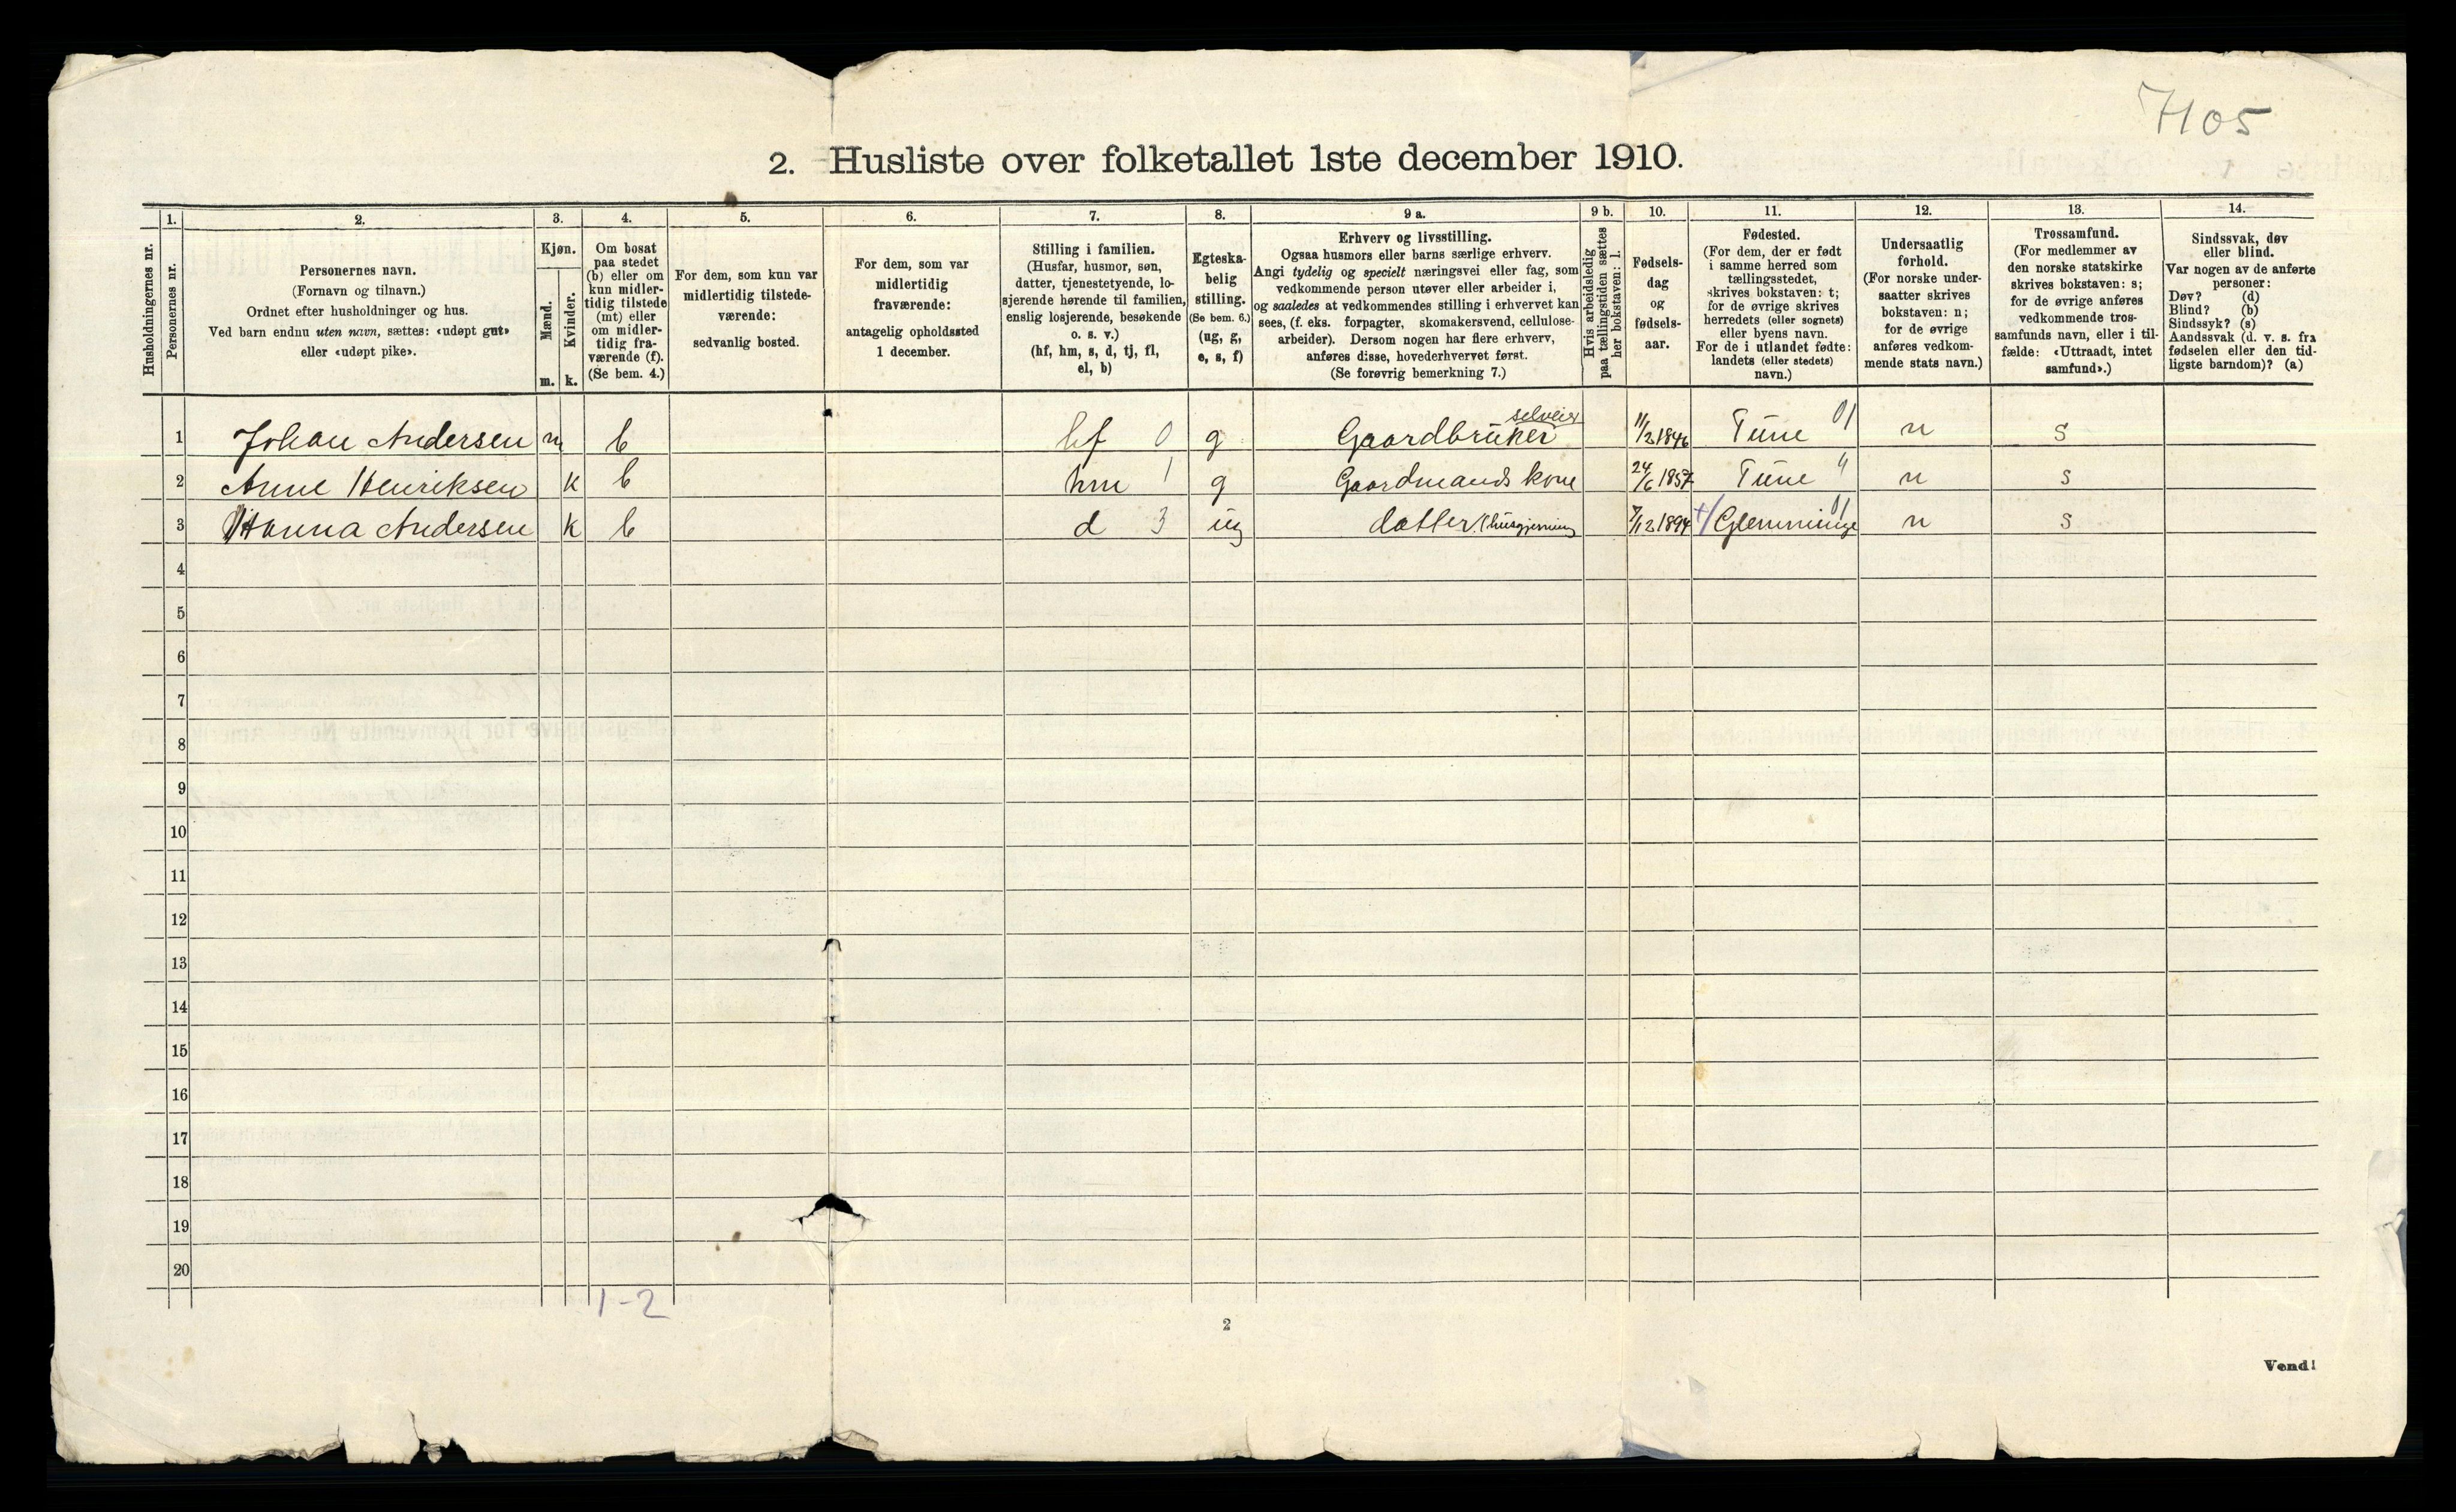 7105
2. Husliste over folketallet 1ste december 1910.
Husholdningernes nr.
1.
Personernes nr.
2.
Personernes navn.
(Fornavn og tilnavn.)
Ordnet efter husholdninger og hus.
Ved barn endnu uten navn, sættes: «udøpt gut»
eller «udøpt pike».
3.
Kjøn.
Mænd.
Kvinder.
m. k.
4.
Om bosat
paa stedet
(b) eller om
kun midler-
tidig tilstede
(mt) eller
om midler-
tidig fra-
værende (f).
(Se bem. 4.)
5.
For dem, som kun var
midlertidig tilstede-
værende:
sedvanlig bosted.
6.
For dem, som var
midlertidig
fraværende:
antagelig opholdssted
1 december.
7.
Stilling i familien.
(Husfar, husmor, søn,
datter, tjenestetyende, lo-
sjerende hørende til familien,
enslig losjerende, besøkende
o. s. v.)
(hf, hm, s, d, tj, fl,
el, b)
8.
Egteska-
belig
stilling.
(Se bem. 6.)
(ug, g,
e, s, f)
9 a.
Erhverv og livsstilling.
Ogsaa husmors eller barns særlige erhverv.
Angi tydelig og specielt næringsvei eller fag, som
vedkommende person utøver eller arbeider i,
og saaledes at vedkommendes stilling i erhvervet kan
sees, (f. eks. forpagter, skomakersvend, cellulose-
arbeider). Dersom nogen har flere erhverv,
anføres disse, hovederhvervet først.
(Se forøvrig bemerkning 7.)
9 b.
Hvis arbeidsledig
paa tællingstiden sættes
her bokstaven: l.
10.
Fødsels-
dag
og
fødsels-
aar.
11.
Fødested.
(For dem, der er født
i samme herred som
tællingsstedet,
skrives bokstaven: t;
for de øvrige skrives
herredets (eller sognets)
eller byens navn.
For de i utlandet fødte:
landets (eller stedets)
navn.)
12.
Undersaatlig
forhold.
(For norske under-
saatter skrives
bokstaven: n;
for de øvrige
anføres vedkom-
mende stats navn.)
13.
Trossamfund.
(For medlemmer av
den norske statskirke
skrives bokstaven: s;
for de øvrige anføres
vedkommende tros-
samfunds navn, eller i til-
fælde: «Uttraadt, intet
samfund».)
14.
Sindssvak, døv
eller blind.
Var nogen av de anførte
personer:
Døv? (d)
Blind? (b)
Sindssyk? (s)
Aandssvak (d. v. s. fra
fødselen eller den tid-
ligste barndom)? (a)
1 Johan Andersen m b hf 0 g Gaardbruker selveier 11/2 1846 Tune 01 n s
2 Anne Henriksen k b hm 1 g Gaardmands kone 24/6 1857 Tune " n s
3 Hanna Andersen k b d 3 ug datter/husgjerning 7/12 1894 Glemminge 01 n s
4
5
6
7
8
9
10
11
12
13
14
15
16
17
18
19
20
1-2
2
Vend!